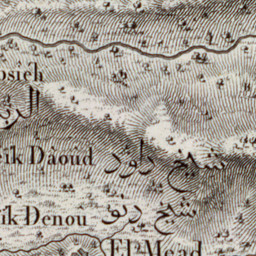 osieh
الزي
eïk Dâoúd شيخ داود
ïk Denou شيخ دنو
El Mead